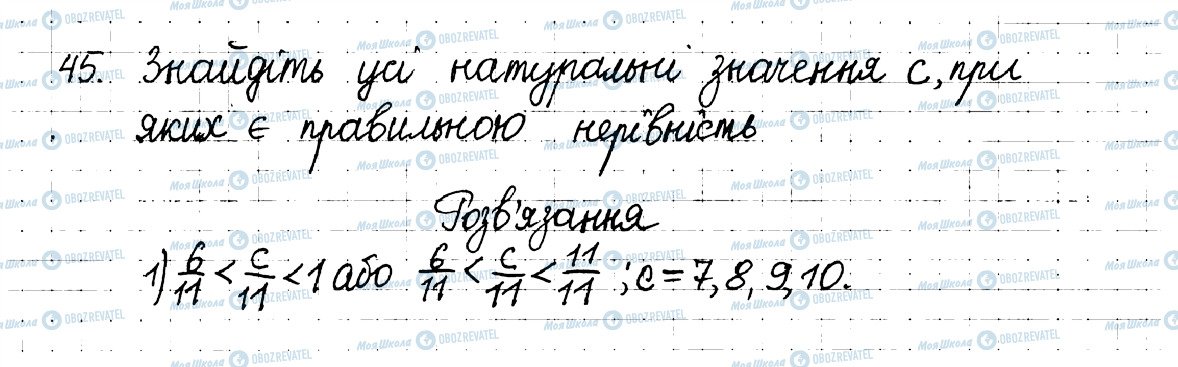 45. Знайдіть усі натуральні значення c, при
яких є правильною нерівність
Розв'язання
1) 6/11 < c/11 < 1 або 6/11 < c/11 < 11/11; c = 7, 8, 9, 10.
МояШкола OBOZREVATEL